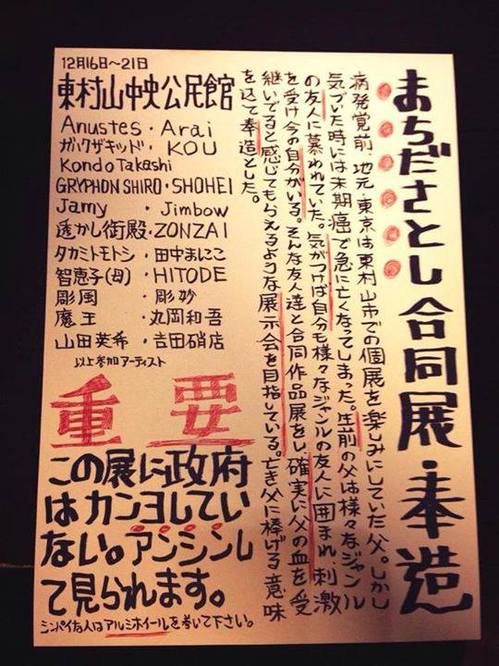 まちださとし合同展・奉造
病発覚前、地元・東京は東村山市での個展を楽しみにしていた父。しかし
気づいた時には末期癌で急に亡くなってしまった。生前の父は様々なジャンル
の友人に慕われていた。気がつけば自分も様々なジャンルの友人に囲まれ、刺激
を受け今の自分がいる。そんな友人達と合同作品展をし、確実に父の血を受
継いでると感じてもらえるような展示会を目指している。亡き父に捧げる意味
を込て奉造とした。
12月16日〜21日
東村山中央公民館
Anustes・Arai
ガハクザキッド・KOU
Kondo Takashi
GRYPHON SHIRO・SHOHEI
Jamy・Jimbow
透かし街殿・ZONZAI
タカミトモトシ・田中ましこ
智恵子(母)・HITODE
彫国・彫妙
魔王・丸岡和吾
山田英希・吉田硝店
以上参加アーティスト
重要
この展に政府
はカンヨしてい
ない。アンシンし
て見られます。
シンパイな人はアルミホイールを巻いて下さい。